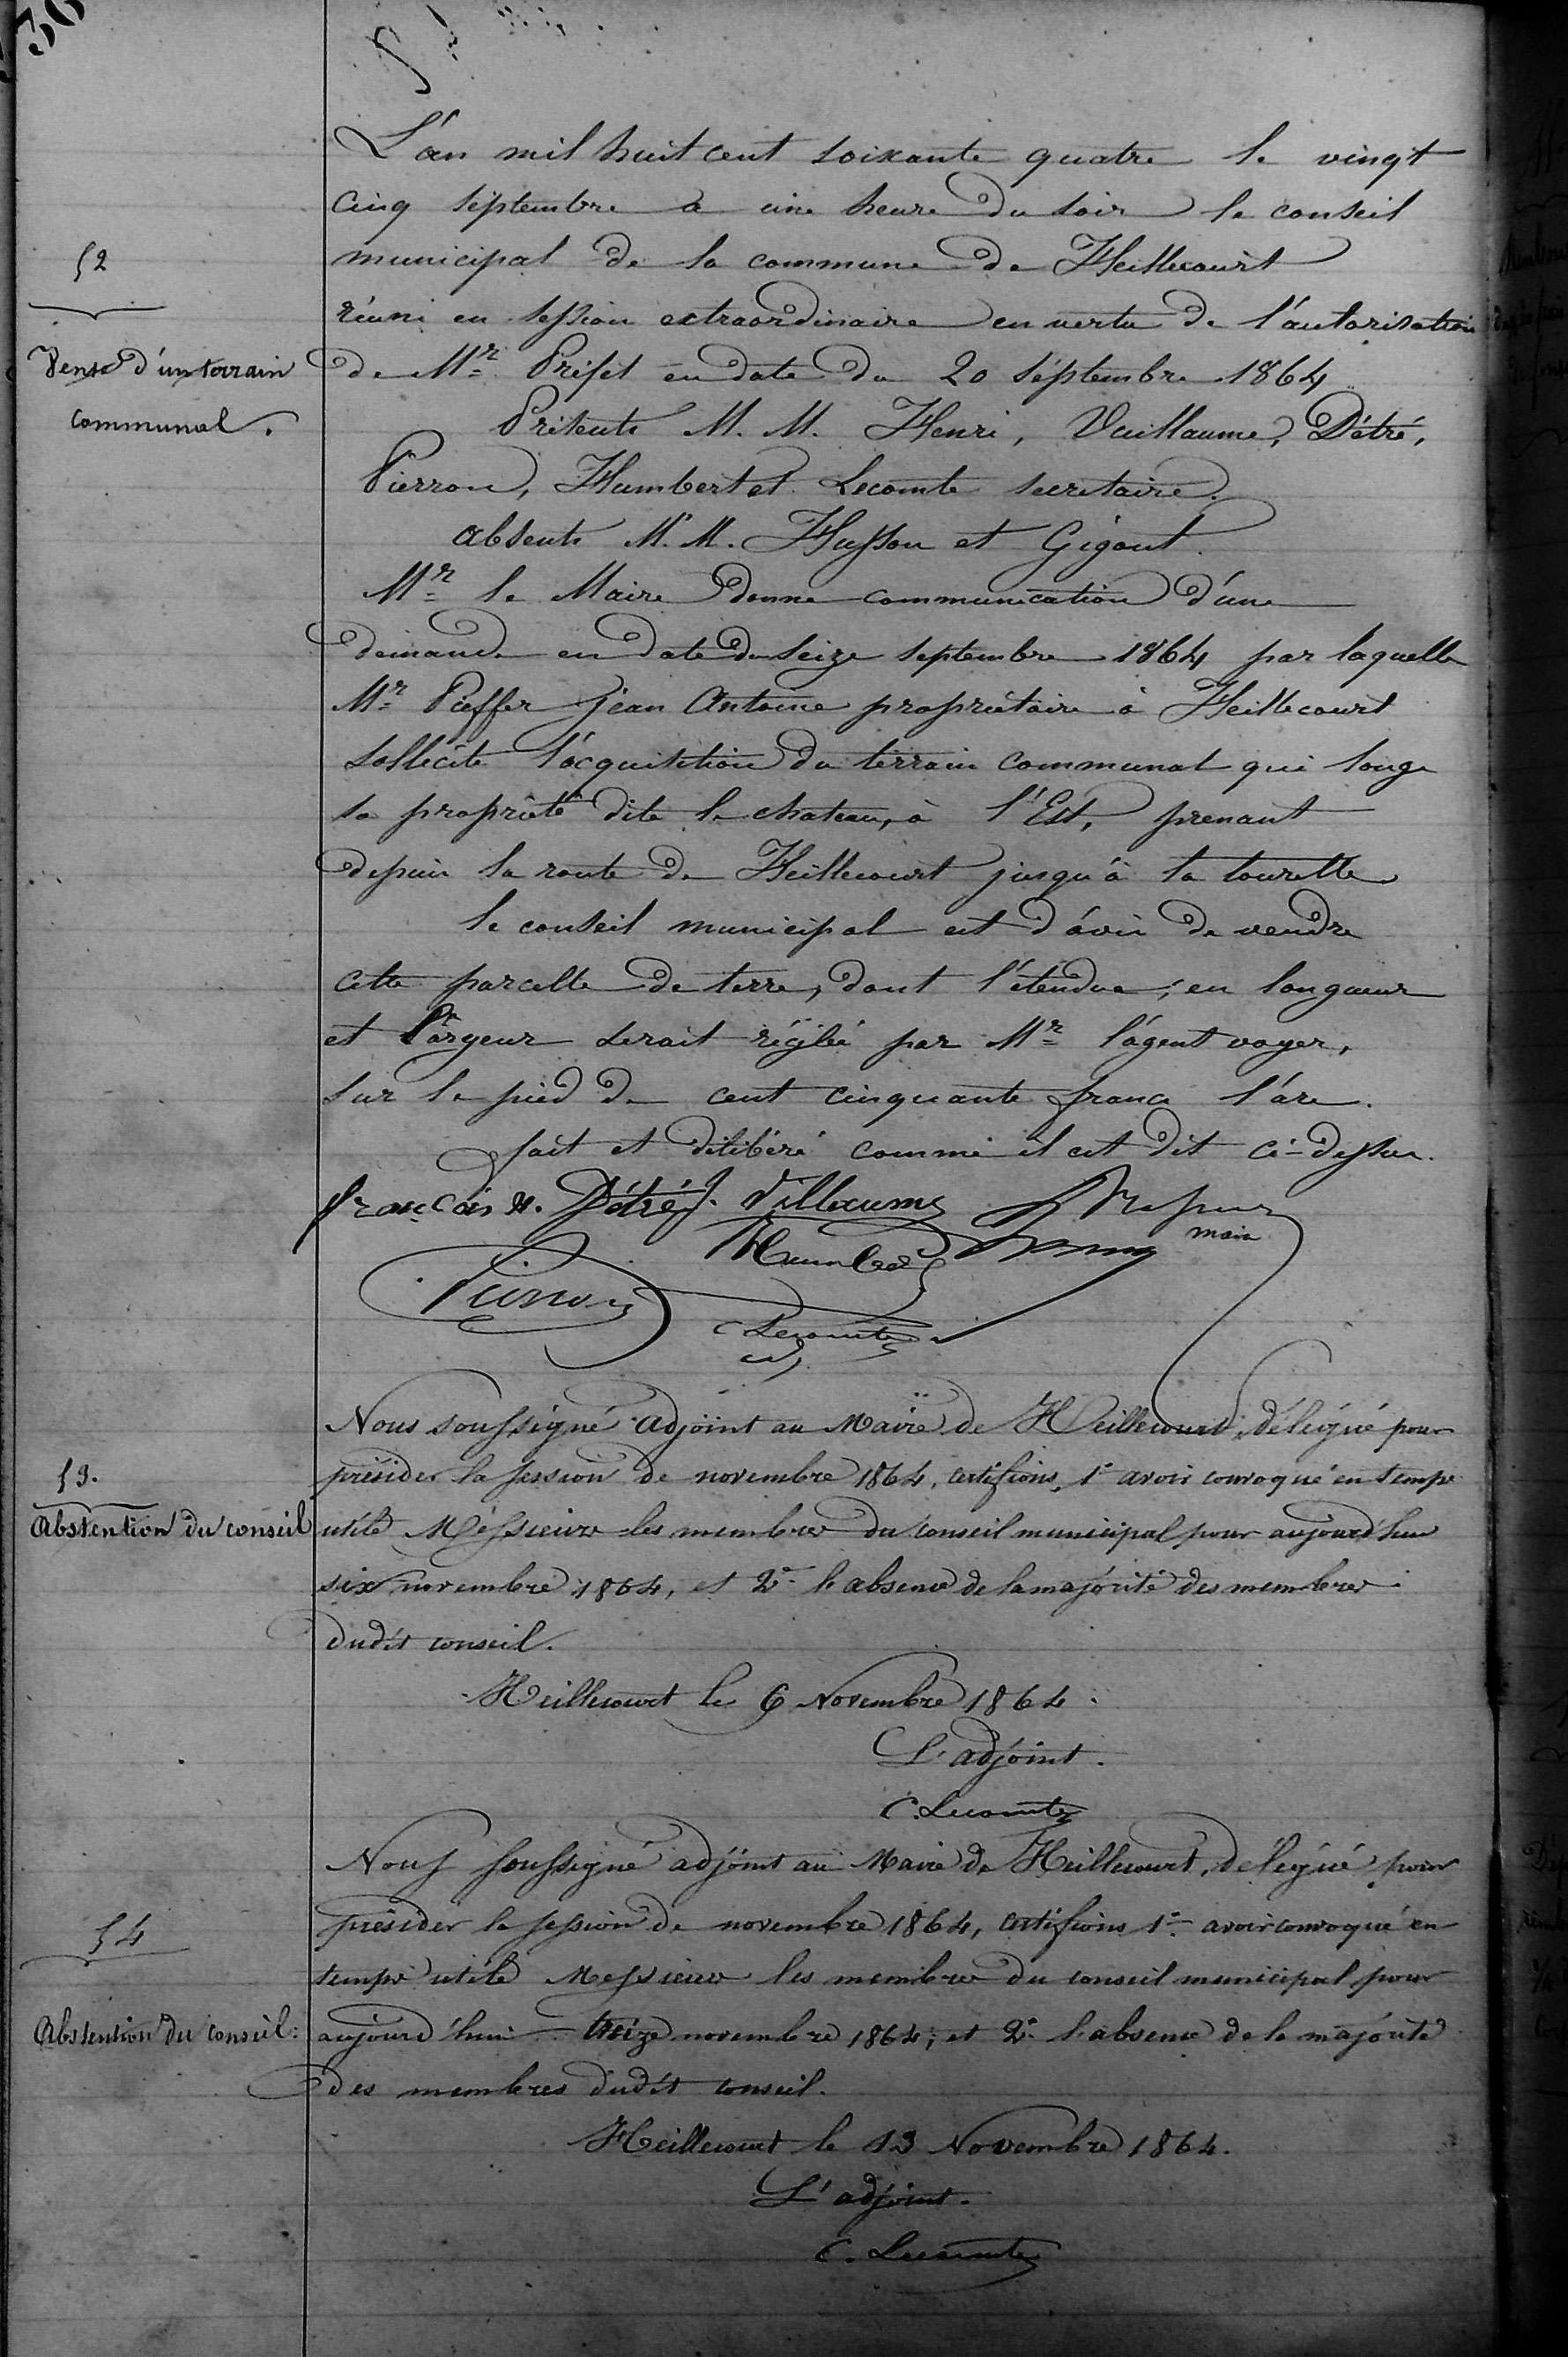 52
Vente d'un terrain
communal.
L'an mil huit cent soixante quatre le vingt
cinq septembre à une heure du soir le conseil
municipal de la commune de Heillecourt
réuni en session extraordinaire en vertu de l'autorisation
de Mr Préfet en date du 20 septembre 1864
Présents M. M. Henri, Vuillaume, Détré,
Pierron, Humbert et Lecomte secretaire.
absents M. M. Husson et Gigout.
Mr le Maire donne communication d'une
demande en date du seize septembre 1864 par laquelle
Mr Pieffer Jean Antoine propriétaire à Heillecourt
sollecite l'acquisition du terrain communal qui longe
sa propriété dite le chateau, à l'Est, prenant
depuis la route de Heillecourt jusqu'à la tourelle
le conseil municipal est d'avis de vendre
cette parcelle de terre, dont l'étendue, en longueur
et largeur serait réglée par Mr l'agent voyer,
sur le pied de cent cinquante francs l'are.
fait et délibéré comme il est dit ci-dessus.
françois H. Détré J. Villaume
maire
Humbert
Pierron
Lecomte
53.
Abstention du conseil
Nous soussigné adjoint au Maire de Heillecourt, délégué pour
présider la session de novembre 1864, certifions, 1° avoir convoqué en temps
utile Messieurs les membres du conseil municipal pour aujourd'hui
six novembre 1864, et 2° l'absence de la majorité des membres
dudit conseil.
Heillecourt le 6 Novembre 1864.
L'adjoint.
C. Lecomte
54
Abstention du conseil.
Nous soussigné adjoint au Maire de Heillecourt, délégué pour
présider la session de novembre 1864, certifions 1° avoir convoqué en
temps utile Messieurs les membres du conseil municipal pour
aujourd'hui treize novembre 1864; et 2° l'absence de la majorité
des membres dudit conseil.
Heillecourt le 13 Novembre 1864.
L'adjoint.
C. Lecomte